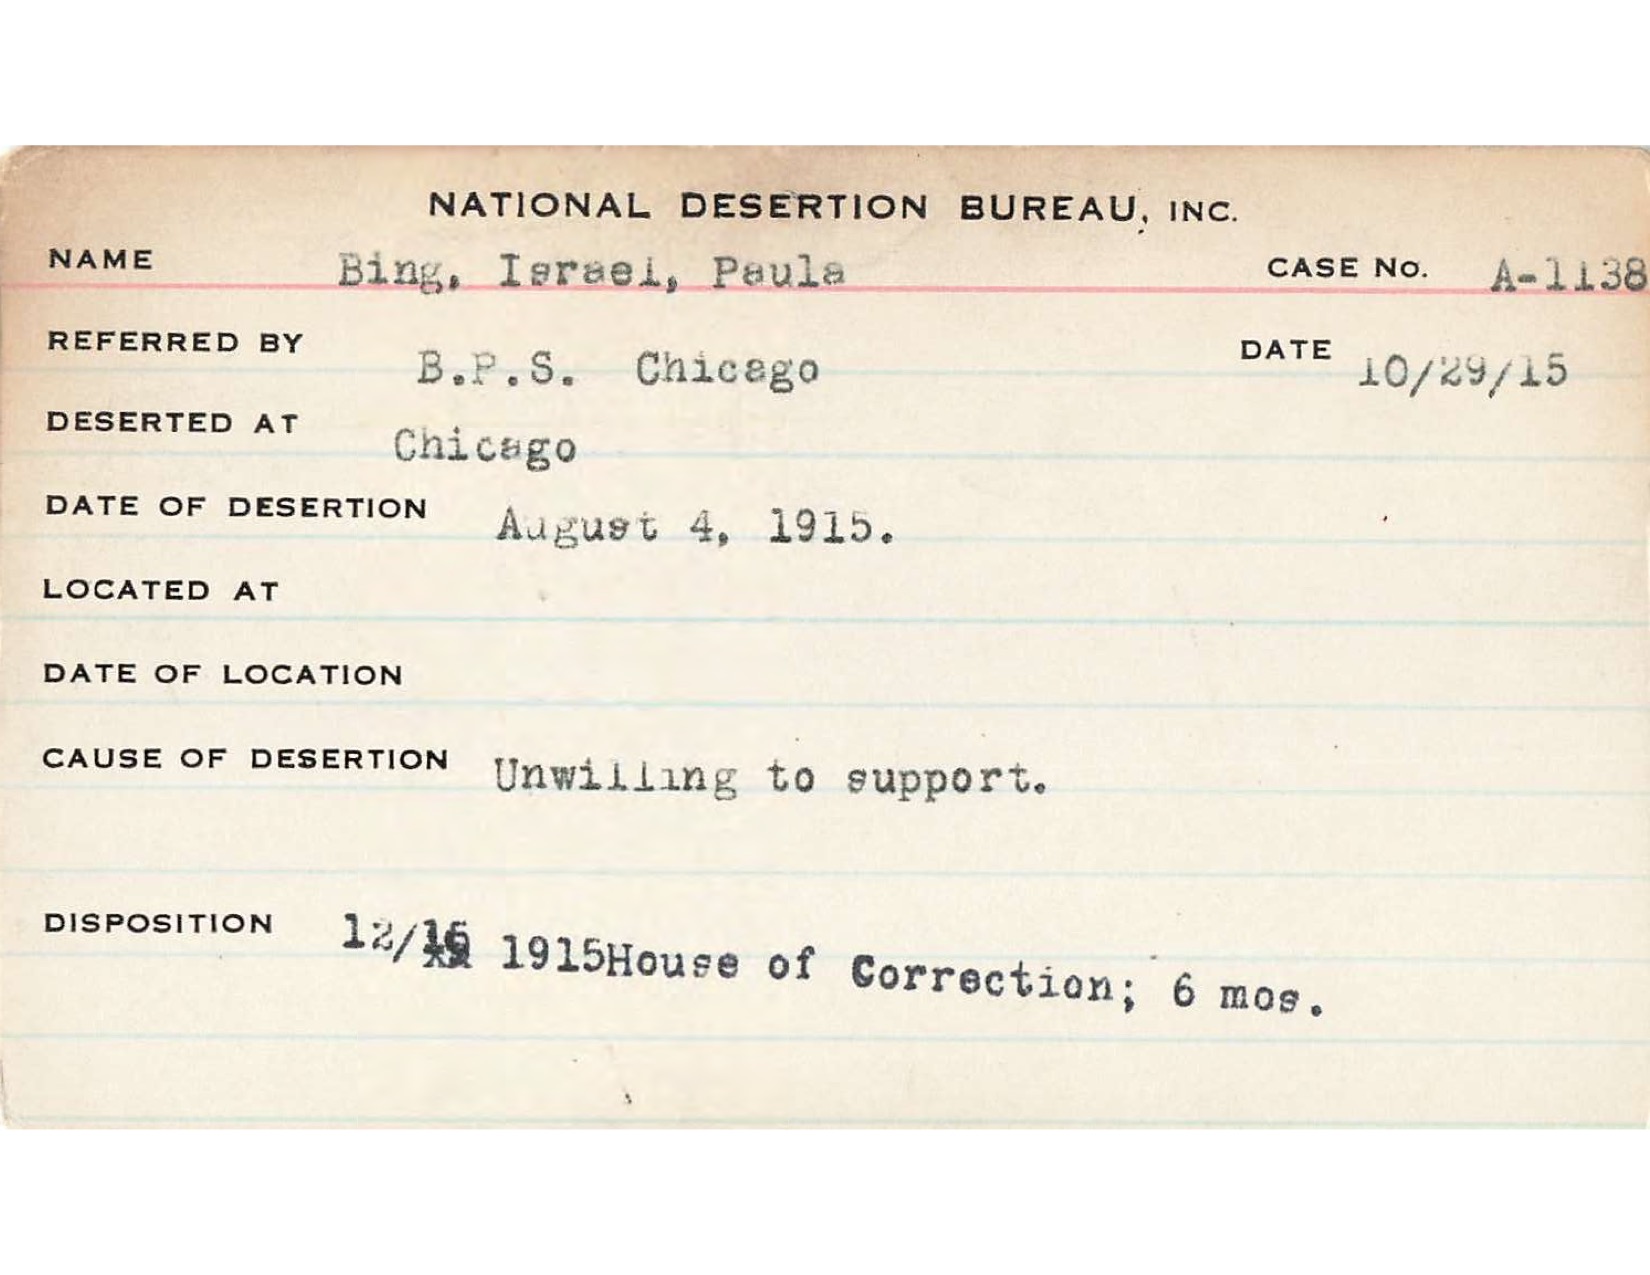 NATIONAL DESERTION BUREAU, INC.
NAME Bing, Israel, Paula CASE No. A-1138
REFERRED BY B.P.S. Chicago DATE 10/29/15
DESERTED AT Chicago
DATE OF DESERTION August 4, 1915.
LOCATED AT
DATE OF LOCATION
CAUSE OF DESERTION Unwilling to support.
DISPOSITION 12/16 1915House of Correction; 6 mos.